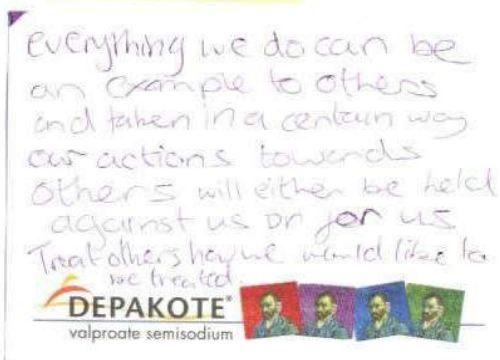 everything we do can be
an example to others
and taken in a certain way
our actions towards
others will either be held
against us or for us
Treat others how we would like to
be treated.
DEPAKOTE®
valproate semisodium